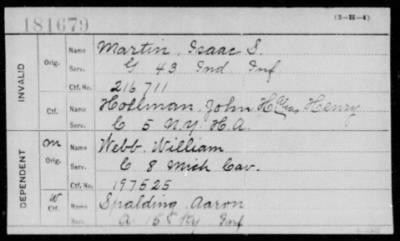 181679
(3-H-4)
INVALID
Orig. Name Martin, Isaac S.
Serv. G 43 Ind. Inf
Ctf. No. 216711
Ctf. Name Hollman, John H Chas Henry
Serv. C 5 N.Y. H.A.
DEPENDENT
m Orig. Name Webb, William
Serv. C 8 Mich Cav.
Ctf. No. 197525
W Ctf. Name Spalding, Aaron
Serv. A. 15 Ky Inf